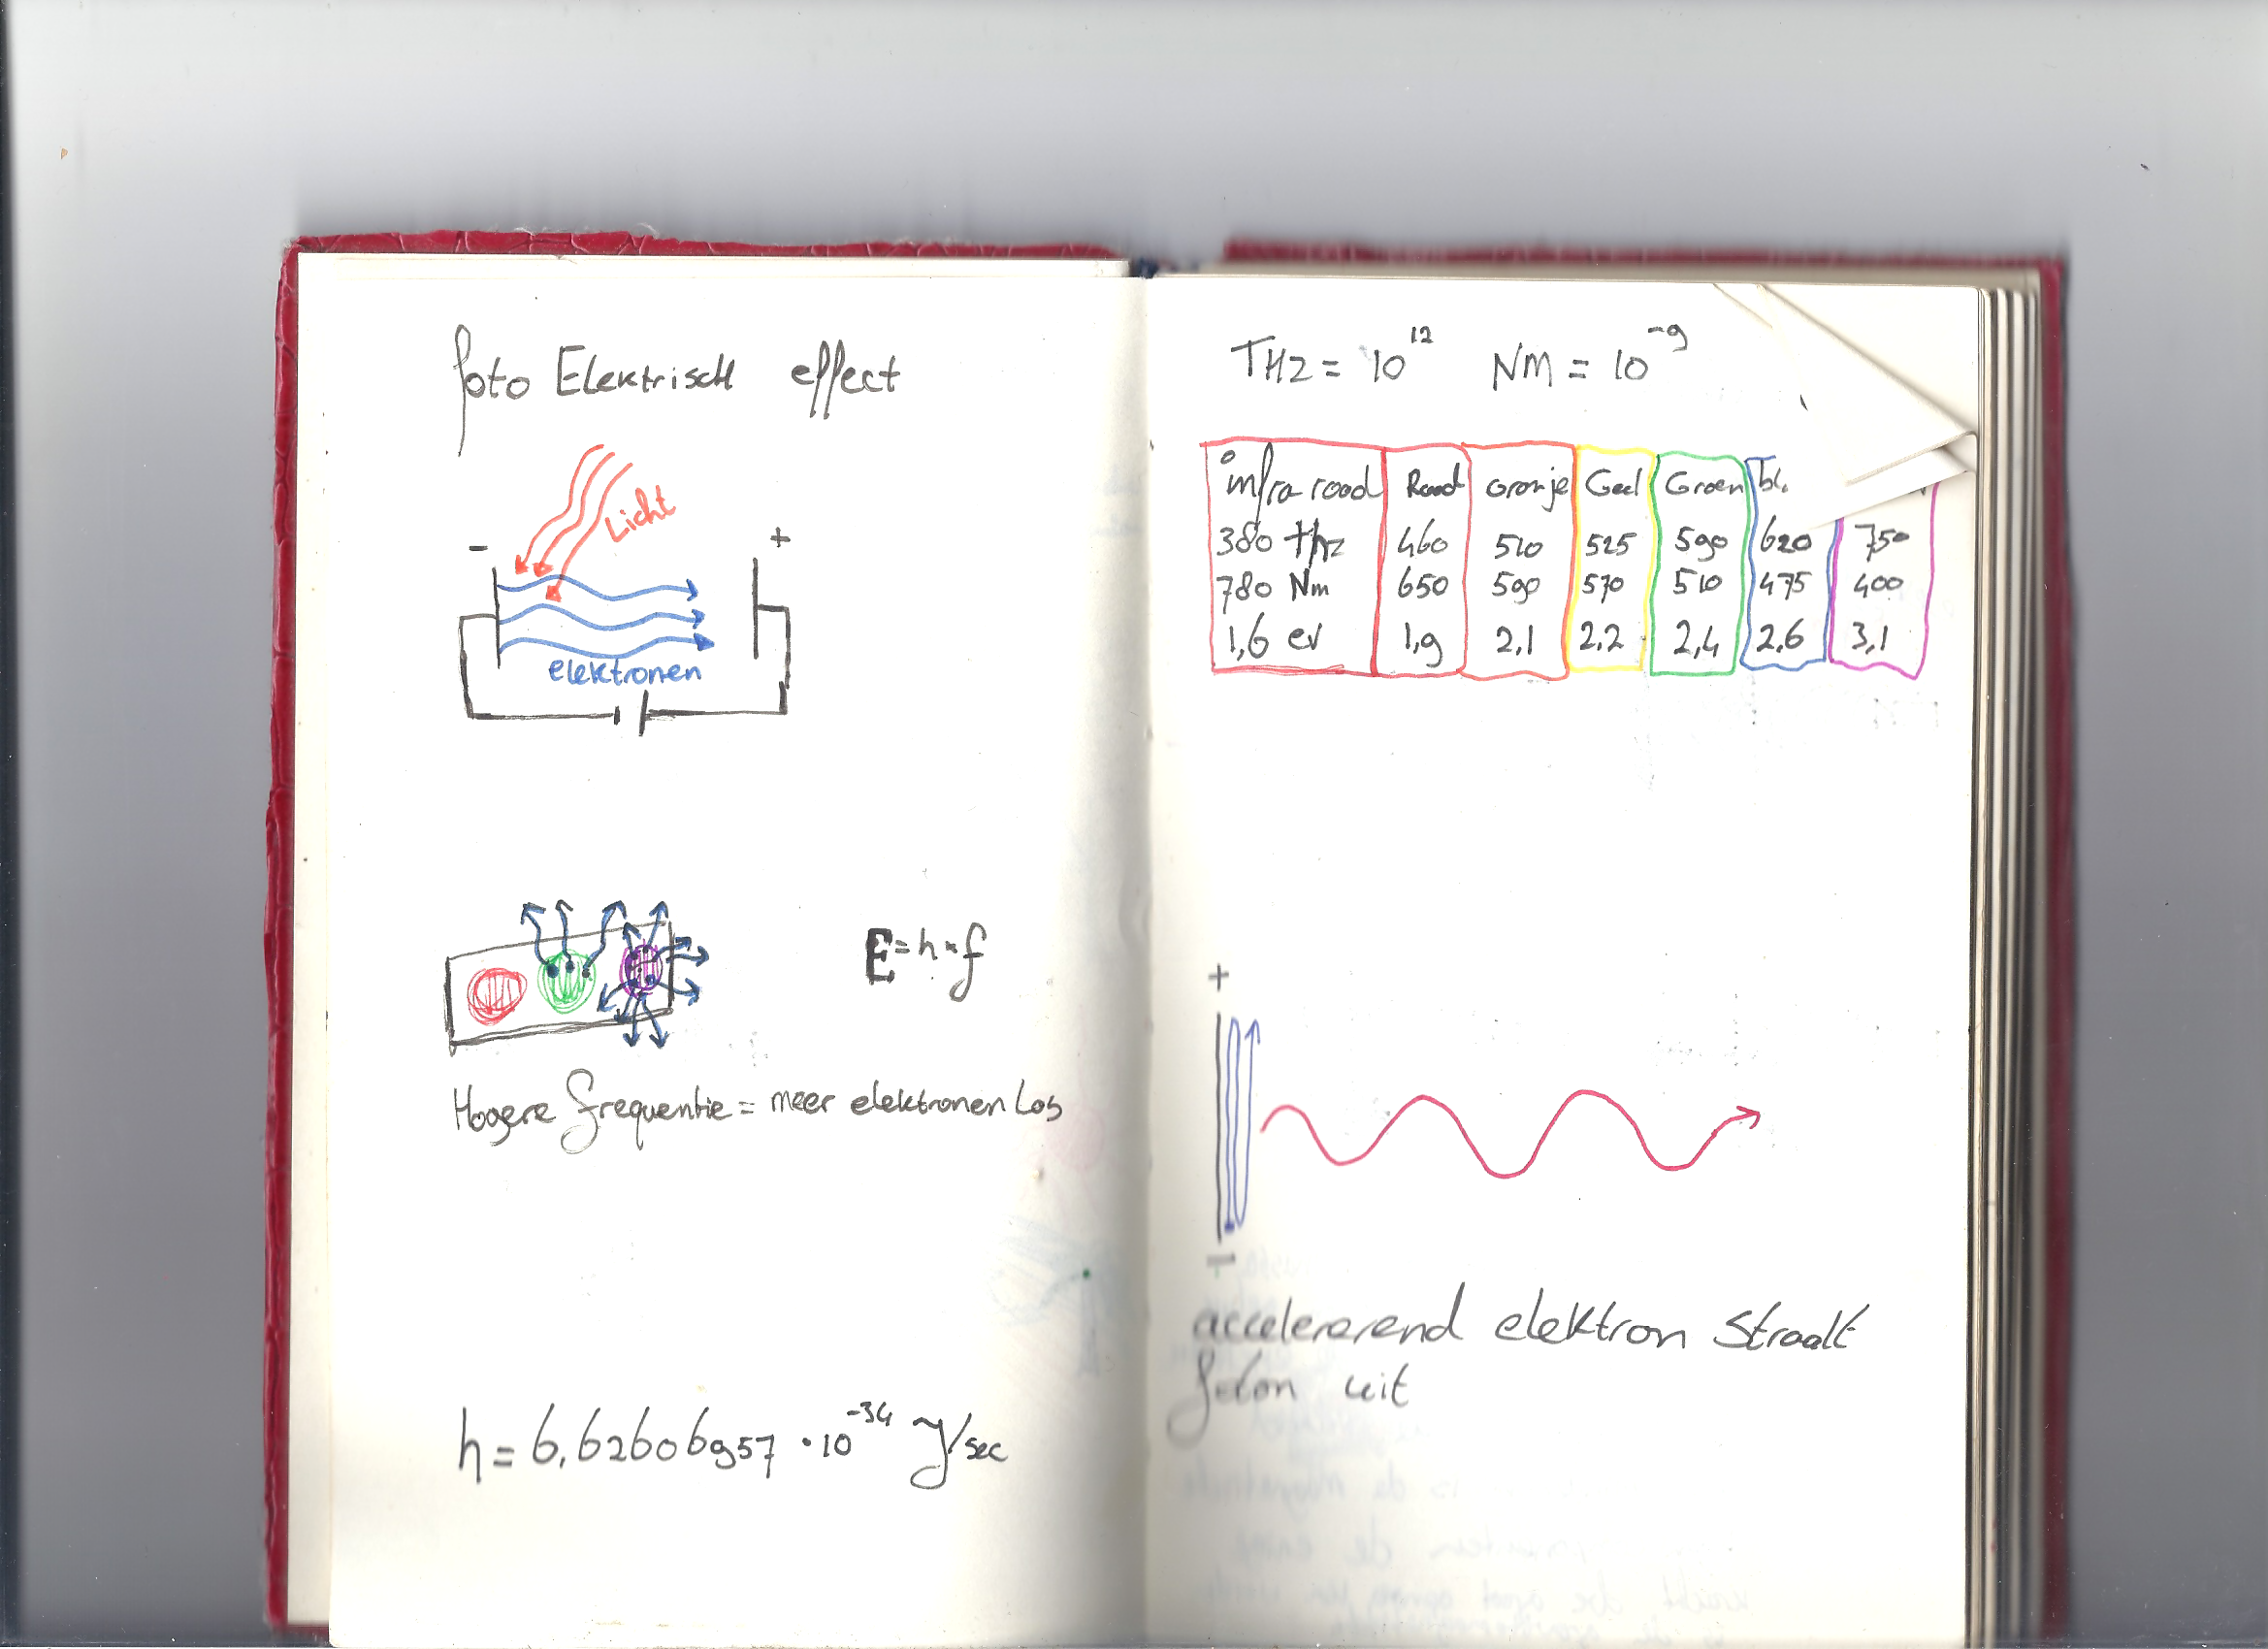 foto Elektrisch effect
Licht
- +
elektronen
E=h·f
Hogere frequentie = meer elektronen Los
h = 6,62606957 · 10⁻³⁴ J/sec
THz = 10¹² NM = 10⁻⁹
infra rood Rood oranje Geel Groen bl.
380 thz 460 510 525 590 620 750
780 Nm 650 590 570 510 475 400
1,6 ev 1,9 2,1 2,2 2,4 2,6 3,1
+
-
accelererend elektron straalt
foton uit